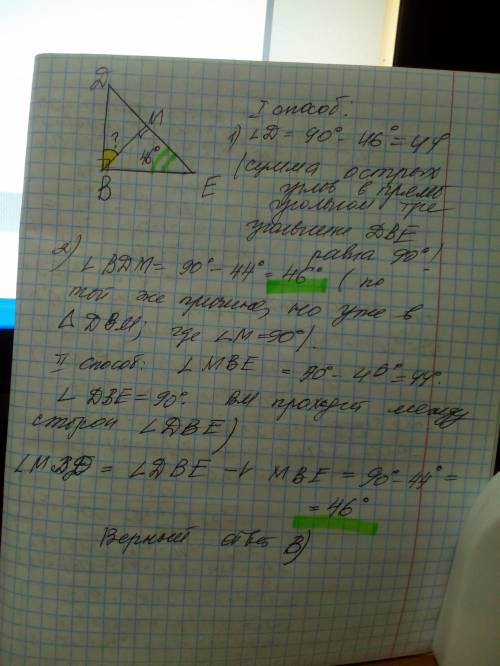 Д
М
?
46°
В
Е
I способ:
1) ∠Д = 90° - 46° = 44°
(сумма острых
углов в прямо
угольном тре
угольнике DBE
равна 90°)
2)
∠BDM = 90° - 44° = 46° (по
той же причине, но уже в
△ DBM; где ∠M = 90°).
II способ: ∠ MBE = 90° - 46° = 44°.
∠ DBE = 90°. BM проходит между
сторон ∠DBE)
∠MBD = ∠DBE - ∠ MBE = 90° - 44° =
= 46°
Верный ответ В)